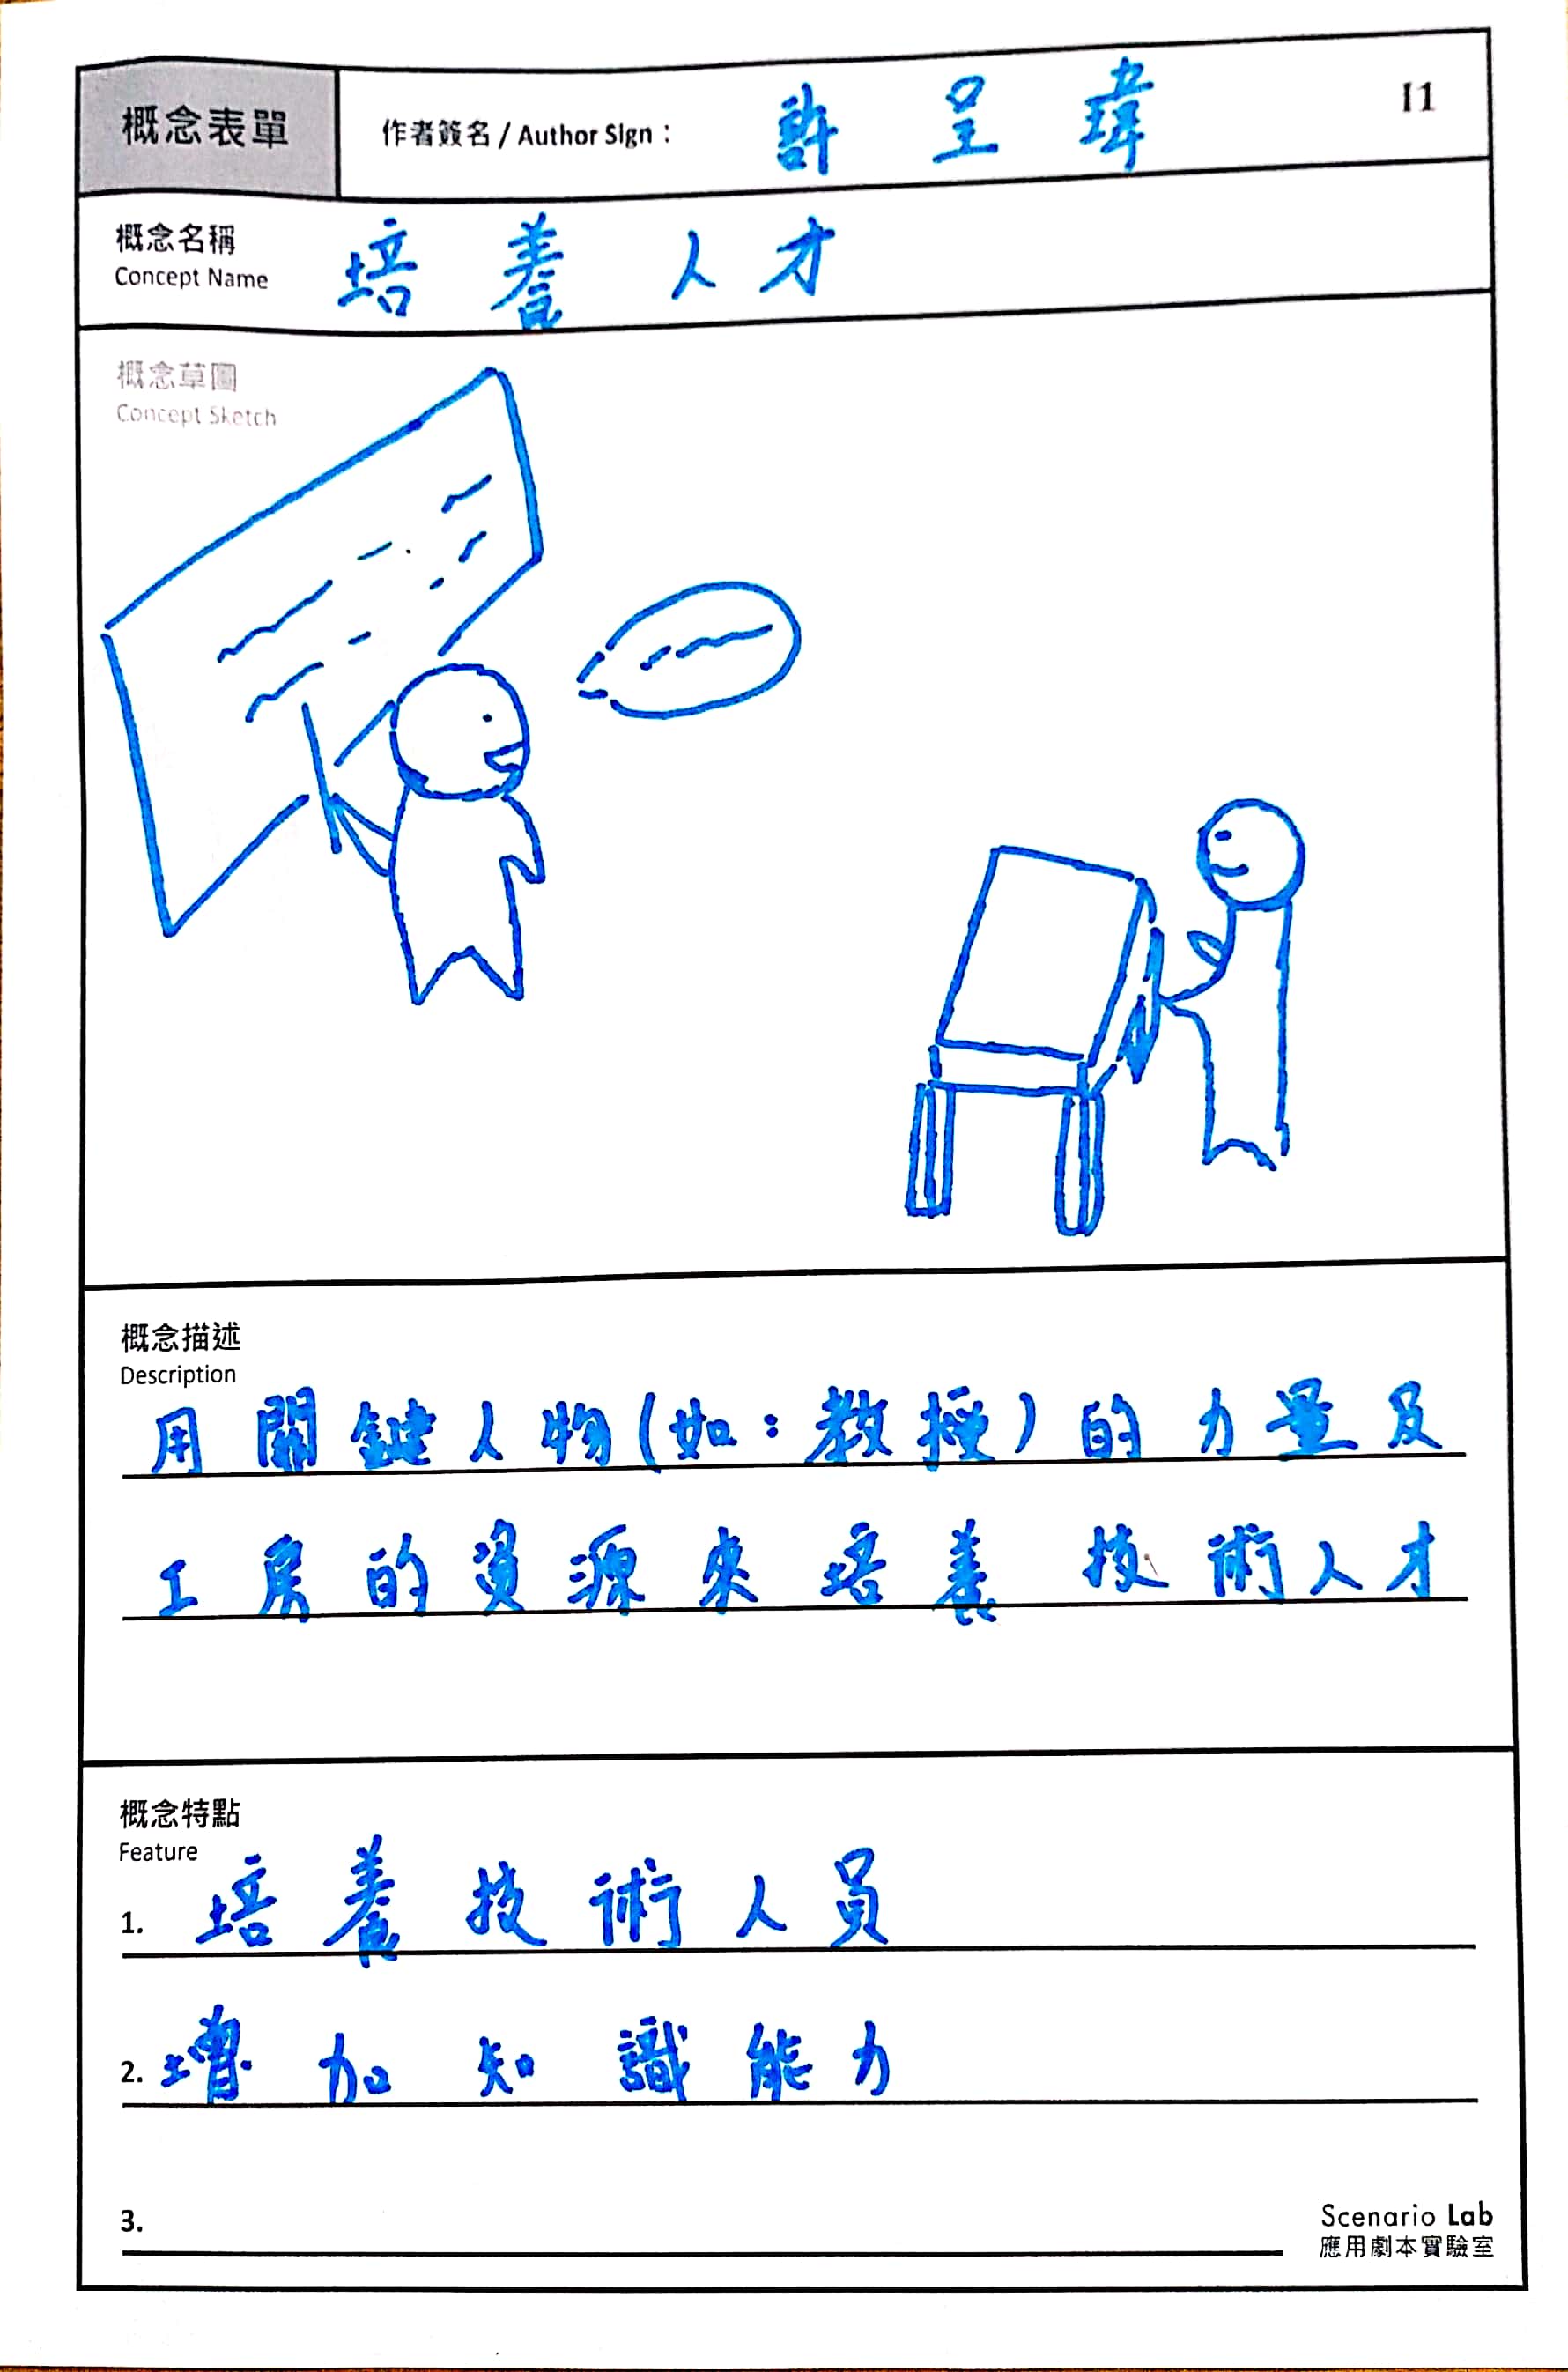 概念表單
作者簽名 / Author Sign : 許呈瑋
I1
概念名稱
Concept Name
培養人才
概念草圖
Concept Sketch
概念描述
Description
用關鍵人物(如:教授)的力量及
工房的資源來培養技術人才
概念特點
Feature
1. 培養技術人員
2. 增加知識能力
3.
Scenario Lab
應用劇本實驗室